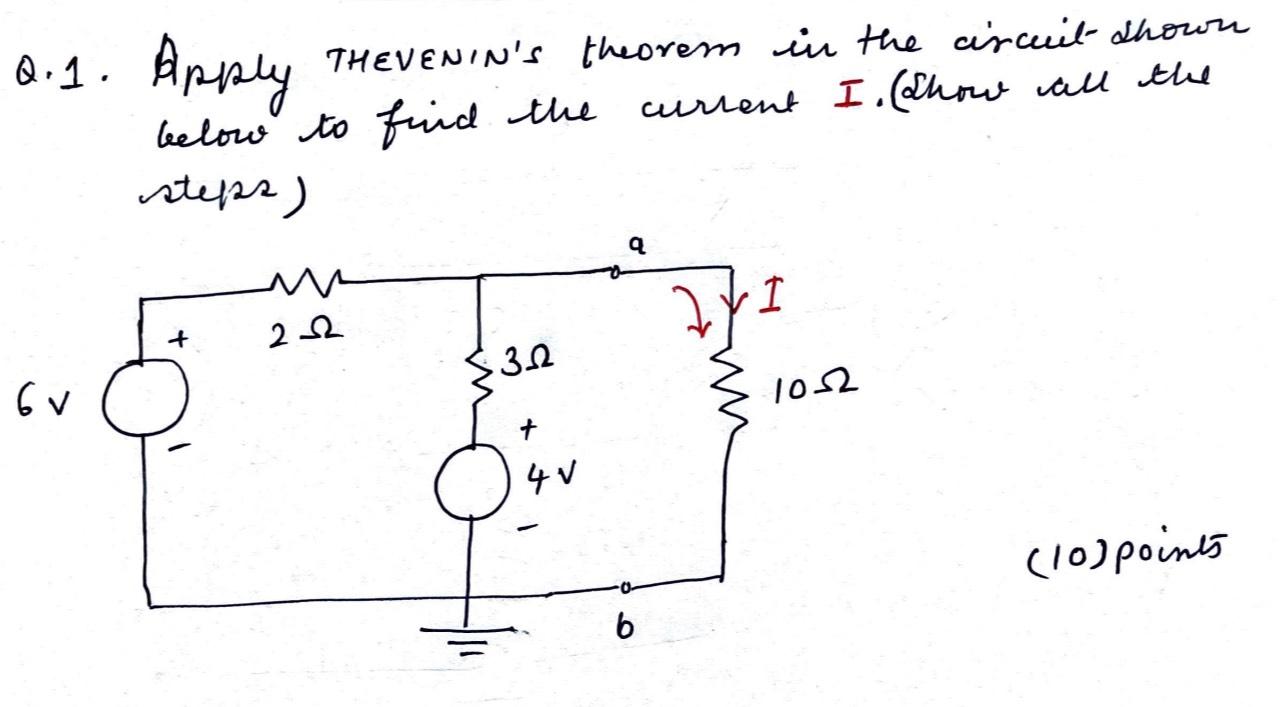 Q.1. Apply THEVENIN'S theorem in the circuit shown
below to find the current I. (Show all the
steps)
a
I
+
2 Ω
3Ω
6 V
10Ω
+
4 V
-
-
(10) points
b